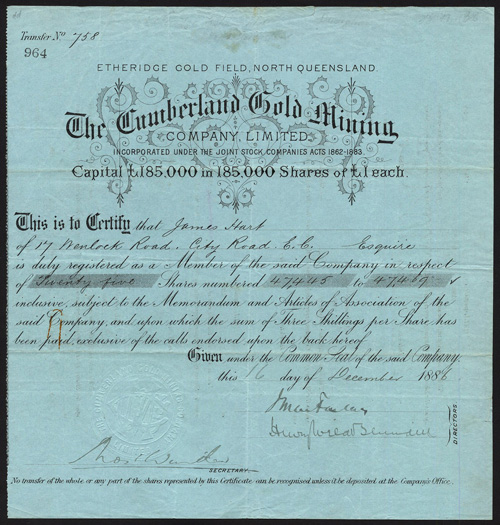 Transfer No 758
964
ETHERIDGE GOLD FIELD, NORTH QUEENSLAND.
The Cumberland Gold Mining
COMPANY, LIMITED.
INCORPORATED UNDER THE JOINT STOCK COMPANIES ACTS 1862-1883
Capital £185,000 in 185,000 Shares of £1 each.
This is to Certify that James Hart
of 17 Wenlock Road. City Road. E.C. Esquire
is duly registered as a Member of the said Company in respect
of Twenty five Shares numbered 47445 to 47469
inclusive, subject to the Memorandum and Articles of Association of the
said Company, and upon which the sum of Three Shillings per Share has
been paid, exclusive of the calls endorsed upon the back hereof.
Given under the Common Seal of the said Company.
this 16 day of December 1886
DIRECTORS
SECRETARY
No transfer of the whole or any part of the shares represented by this Certificate can be recognised unless it be deposited at the Company's Office.